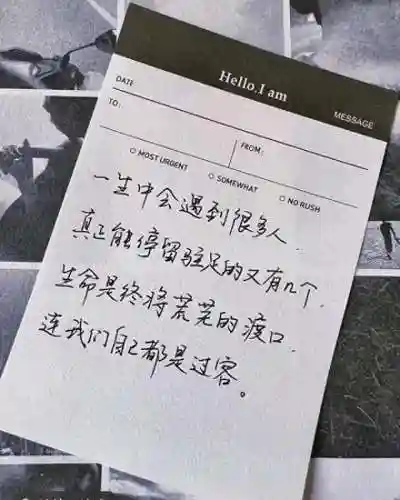 Hello.I am
MESSAGE
DATE
TO:
FROM:
MOST URGENT
SOMEWHAT
NO RUSH
一生中会遇到很多人.
真正能停留驻足的又有几个.
生命是终将荒芜的渡口.
连我们自己都是过客。